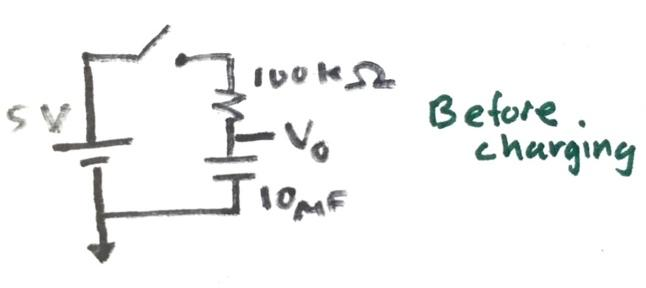 100kΩ
5 V
V₀
10µF
Before.
charging